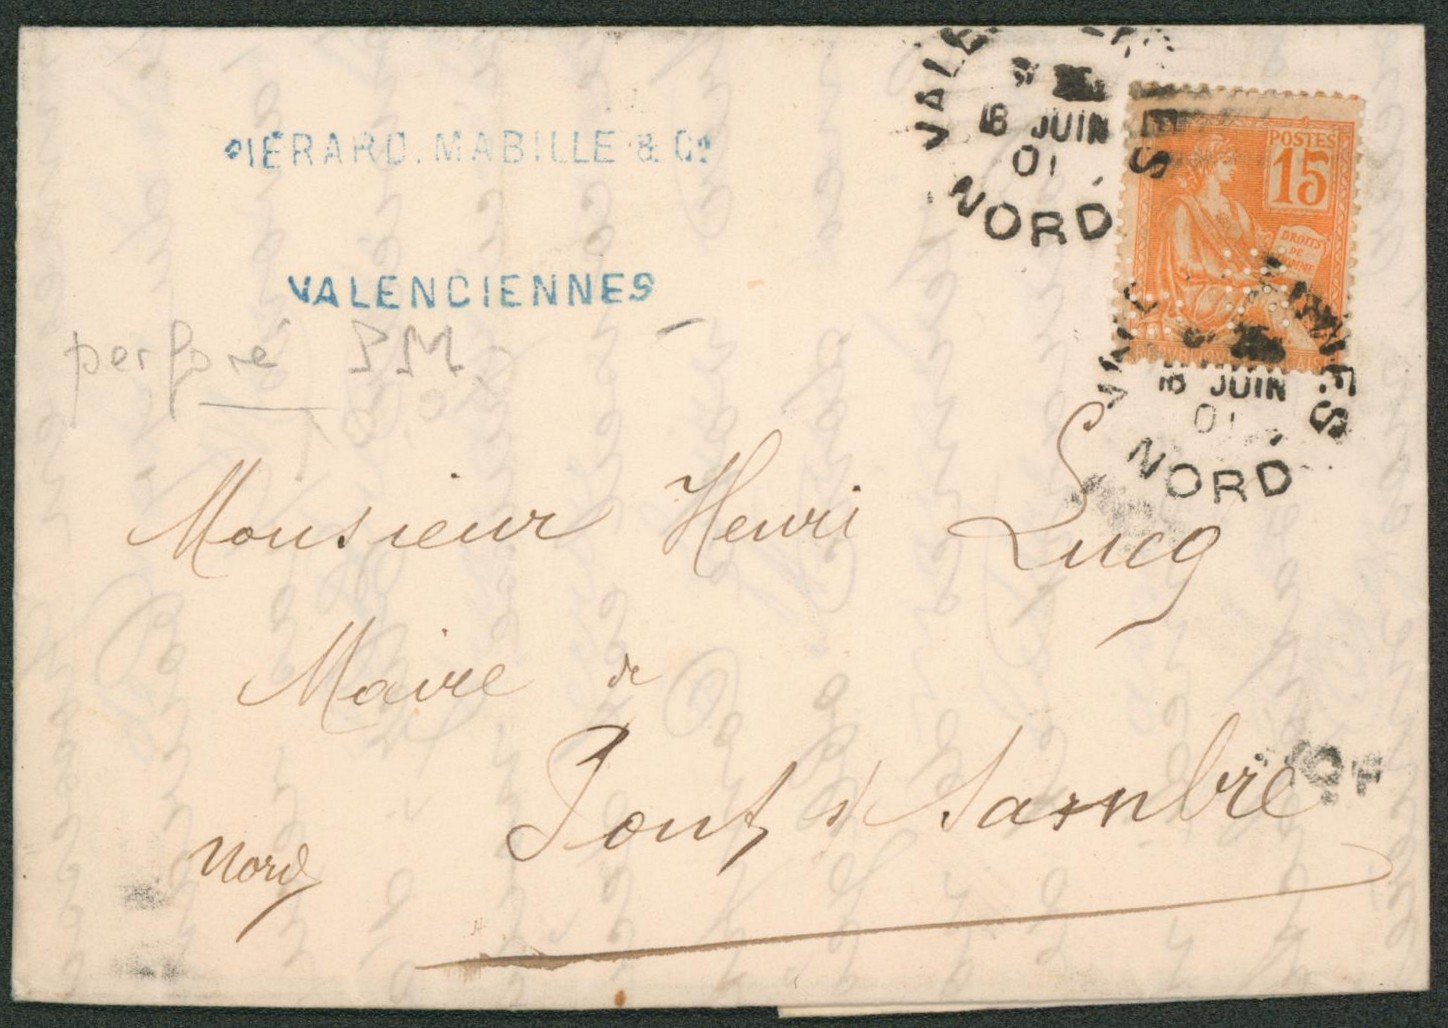 PIÉRARD. MABILLE & Cie
VALENCIENNES
perforé
18 JUIN
01
NORD
POSTES
15
DROITS
DE
18 JUIN
01
NORD
Monsieur Henri Lucq
Maire de
Pont s/ Sambre
Nord